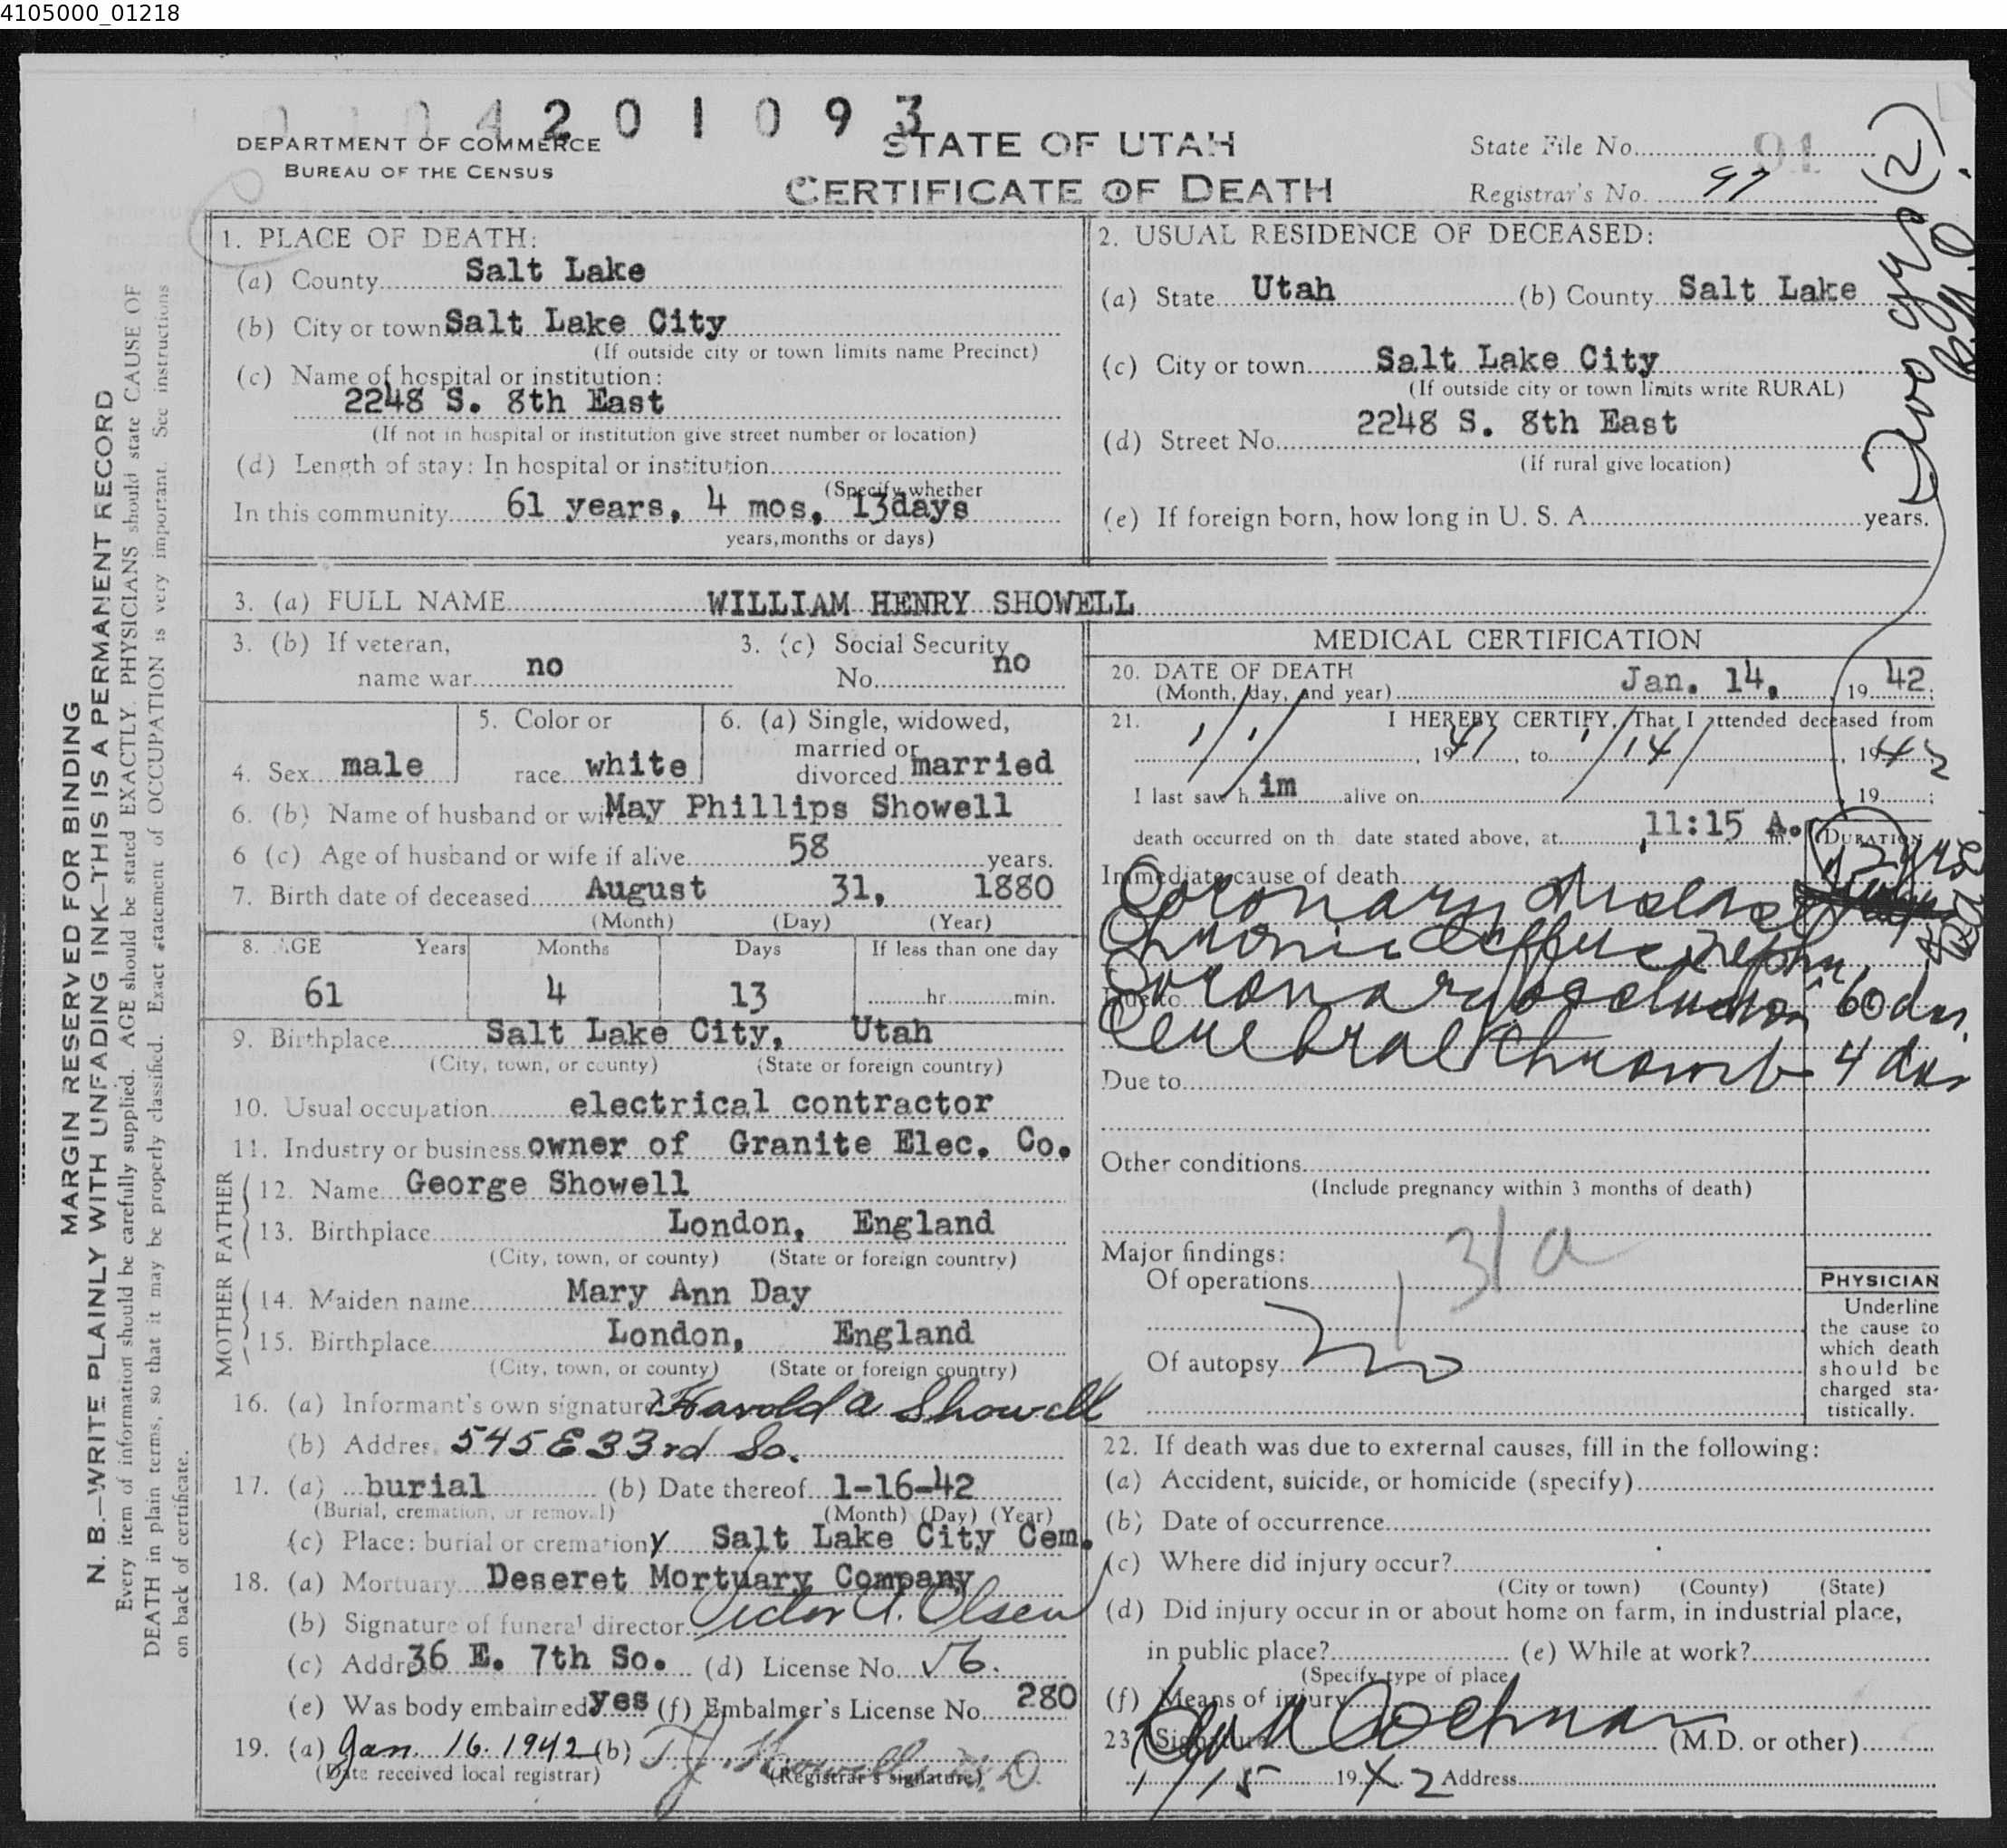 4105000_01218
4201093
DEPARTMENT OF COMMERCE
BUREAU OF THE CENSUS
STATE OF UTAH
CERTIFICATE OF DEATH
State File No. 91
Registrar's No. 97
Two yrs (2)
MARGIN RESERVED FOR BINDING
N. B.—WRITE PLAINLY WITH UNFADING INK—THIS IS A PERMANENT RECORD
Every item of information should be carefully supplied. AGE should be stated EXACTLY. PHYSICIANS should state CAUSE OF
DEATH in plain terms, so that it may be properly classified. Exact statement of OCCUPATION is very important. See instructions
on back of certificate.
1. PLACE OF DEATH:
(a) County Salt Lake
(b) City or town Salt Lake City
(If outside city or town limits name Precinct)
(c) Name of hospital or institution:
2248 S. 8th East
(If not in hospital or institution give street number or location)
(d) Length of stay: In hospital or institution
(Specify whether
In this community 61 years, 4 mos, 13days
years, months or days)
2. USUAL RESIDENCE OF DECEASED:
(a) State Utah (b) County Salt Lake
(c) City or town Salt Lake City
(If outside city or town limits write RURAL)
(d) Street No. 2248 S. 8th East
(If rural give location)
(e) If foreign born, how long in U. S. A. years.
3. (a) FULL NAME WILLIAM HENRY SHOWELL
3. (b) If veteran, 3. (c) Social Security
name war no No. no
4. Sex male
5. Color or
race white
6. (a) Single, widowed,
married or
divorced married
6. (b) Name of husband or wife May Phillips Showell
6 (c) Age of husband or wife if alive 58 years.
7. Birth date of deceased August 31, 1880
(Month) (Day) (Year)
8. AGE Years Months Days If less than one day
61 4 13 hr. min.
9. Birthplace Salt Lake City, Utah
(City, town, or county) (State or foreign country)
10. Usual occupation electrical contractor
11. Industry or business owner of Granite Elec. Co.
FATHER
12. Name George Showell
13. Birthplace London, England
(City, town, or county) (State or foreign country)
MOTHER
14. Maiden name Mary Ann Day
15. Birthplace London, England
(City, town, or county) (State or foreign country)
16. (a) Informant's own signature Harold A Showell
(b) Address 545 E 33rd So.
17. (a) burial (b) Date thereof 1-16-42
(Burial, cremation, or removal) (Month) (Day) (Year)
(c) Place: burial or cremation y Salt Lake City Cem.
18. (a) Mortuary Deseret Mortuary Company
(b) Signature of funeral director Victor A. Olsen
(c) Address 36 E. 7th So. (d) License No. 56.
(e) Was body embalmed yes (f) Embalmer's License No. 280
19. (a) Jan. 16. 1942 (b) T. J. Howells M.D.
(Date received local registrar) (Registrar's signature)
MEDICAL CERTIFICATION
20. DATE OF DEATH
(Month, day, and year) Jan. 14, 19 42;
21. I HEREBY CERTIFY, That I attended deceased from
1/1/, 19 41, to 1/14/, 19 42
I last saw h im alive on 19 ;
death occurred on th date stated above, at 11:15 A. m.
DURATION
Immediate cause of death
Coronary disease 2 yrs
Chronic diffuse nephri
Due to Coronary occlusion 60 das.
Cerebral thromb 4 das
Due to
Other conditions
(Include pregnancy within 3 months of death)
131a
Major findings:
Of operations
Of autopsy no
PHYSICIAN
Underline
the cause to
which death
should be
charged sta-
tistically.
22. If death was due to external causes, fill in the following:
(a) Accident, suicide, or homicide (specify)
(b) Date of occurrence
(c) Where did injury occur?
(City or town) (County) (State)
(d) Did injury occur in or about home on farm, in industrial place,
in public place? (e) While at work?
(Specify type of place
(f) Means of injury
23. Signature (M.D. or other)
1/15 19 42 Address